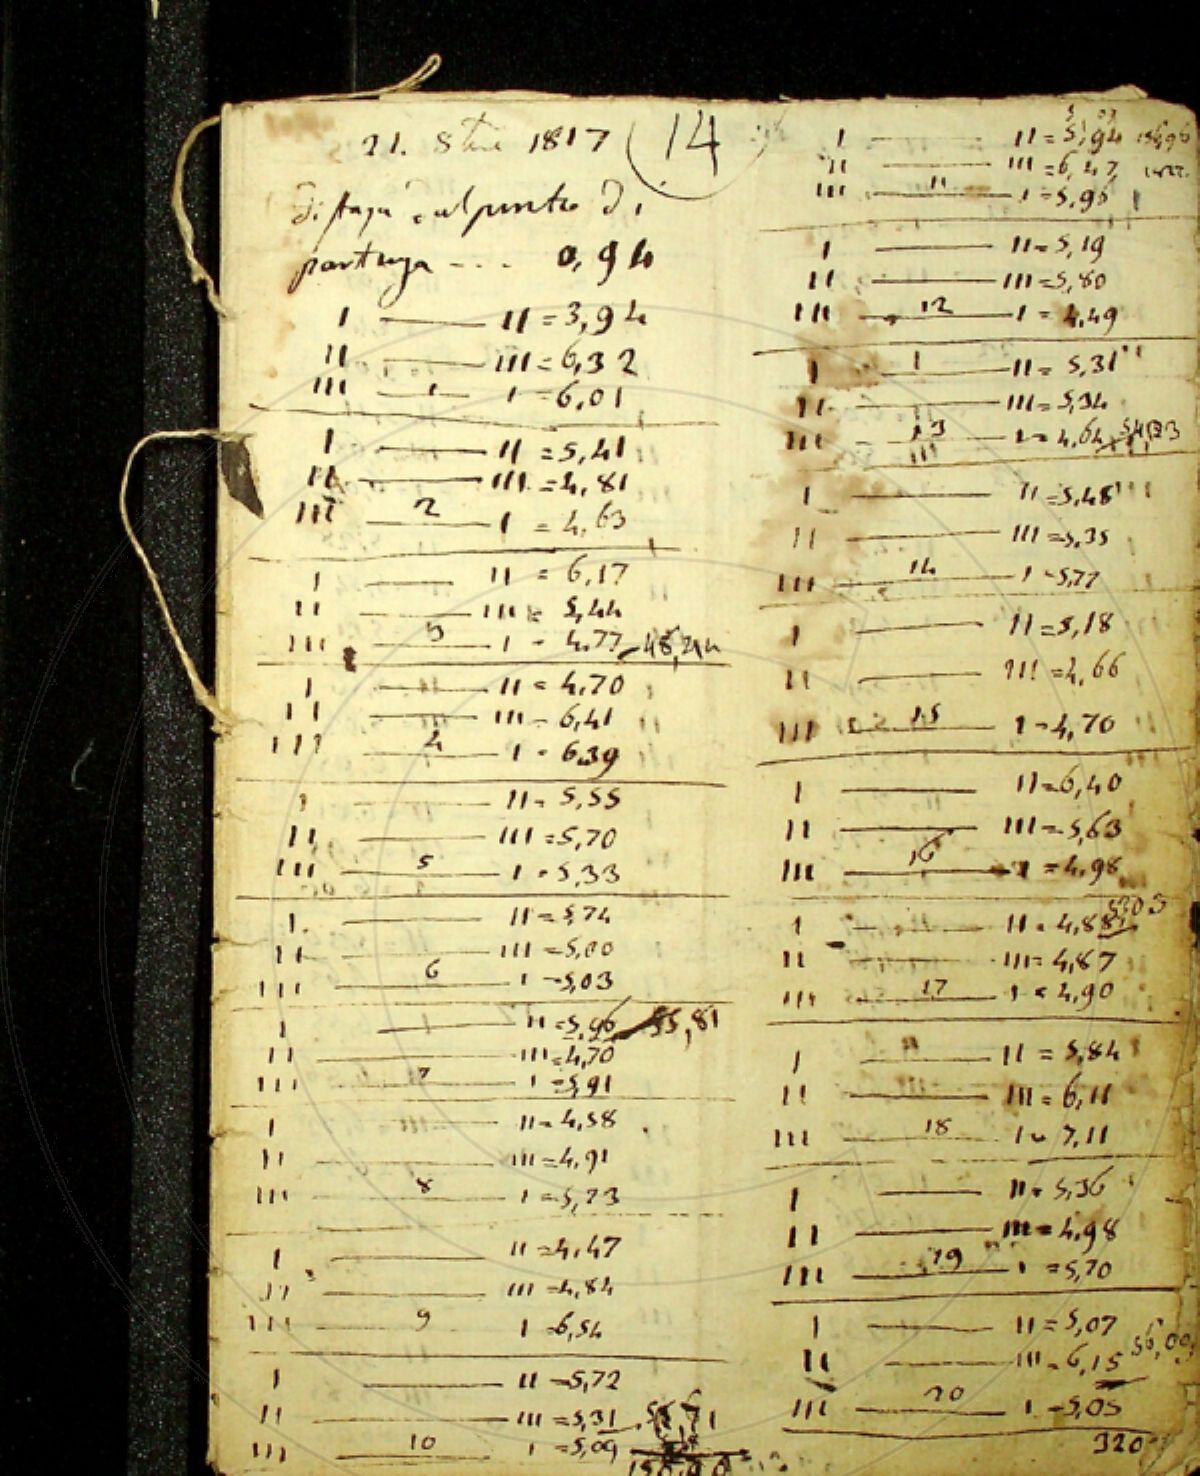 21. 8bre 1817 (14)
punto di
0,94
I —— II = 3,94
II —— III = 6,32
III — 1 — I = 6,01
I —— II = 5,41
II —— III = 4,81
III — 2 — I = 4,63
I —— II = 6,17
II —— III = 5,44
III — 3 — I = 4,77
I —— II = 4,70
II —— III = 6,41
III — 4 — I = 6,39
I —— II = 5,55
II —— III = 5,70
III — 5 — I = 5,33
I —— II = 5,74
II —— III = 5,00
III — 6 — I = 5,03
I —— II = 5,96 55,81
II —— III = 4,70
III — 7 — I = 5,91
I —— II = 4,58
II —— III = 4,91
III — 8 — I = 5,23
I —— II = 4,47
II —— III = 4,84
III — 9 — I = 6,54
I —— II = 5,72
II —— III = 5,31
III — 10 — I = 5,09
I —— II = 5,94
II —— III = 6,47
III — 11 — I = 5,96
I —— II = 5,19
II —— III = 5,80
III — 12 — I = 4,49
I —— II = 5,31
II —— III = 5,34
III — 13 — I = 4,64
I —— II = 5,48
II —— III = 5,35
III — 14 — I = 5,77
I —— II = 5,18
II —— III = 4,66
III — 15 — I = 4,70
I —— II = 6,40
II —— III = 5,63
III — 16 — I = 4,98
I —— II = 4,88
II —— III = 4,87
III — 17 — I = 4,90
I —— II = 5,84
II —— III = 6,11
III — 18 — I = 7,11
I —— II = 5,36
II —— III = 4,98
III — 19 — I = 5,70
I —— II = 5,07
II —— III = 6,15
III — 20 — I = 5,05
320